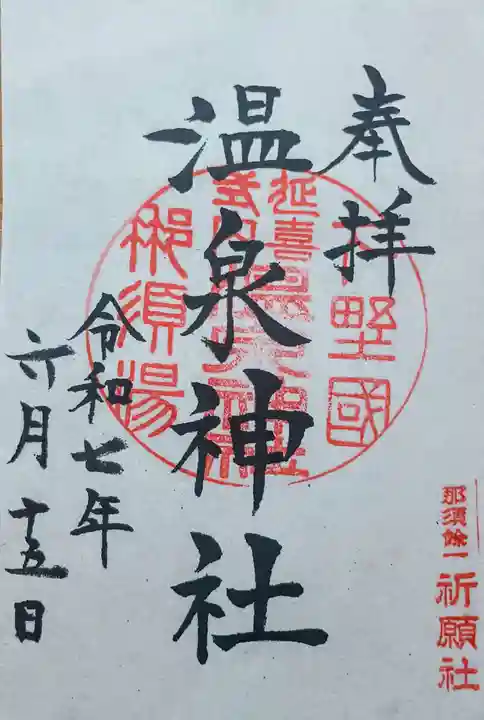 奉拝
温泉神社
令和七年
六月十五日
野國
延喜
那須湯
那須余一
祈願社